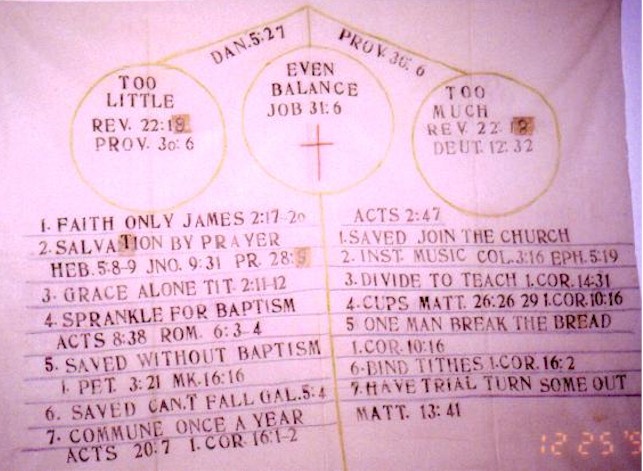 DAN.5:27
PROV. 30: 6
TOO
LITTLE
REV. 22:19
PROV. 30: 6
EVEN
BALANCE
JOB 31:6
TOO
MUCH
REV 22: 18
DEUT. 12:32
1. FAITH ONLY JAMES 2:17-20
2. SALVATION BY PRAYER
HEB.5:8-9 JNO. 9:31 PR. 28:9
3. GRACE ALONE TIT. 2:11-12
4. SPRANKLE FOR BAPTISM
ACTS 8:38 ROM. 6:3-4
5. SAVED WITHOUT BAPTISM
1. PET. 3:21 MK.16:16
6. SAVED CAN.T FALL GAL.5:4
7. COMMUNE ONCE A YEAR
ACTS 20:7 1.COR 16:1-2
ACTS 2:47
1.SAVED JOIN THE CHURCH
2. INST. MUSIC COL.3:16 EPH.5:19
3.DIVIDE TO TEACH 1.COR.14:31
4.CUPS MATT. 26:26 29 1.COR.10:16
5 ONE MAN BREAK THE BREAD
1.COR.10:16
6.BIND TITHES 1.COR.16:2
7.HAVE TRIAL TURN SOME OUT
MATT. 13:41
12 25 '9